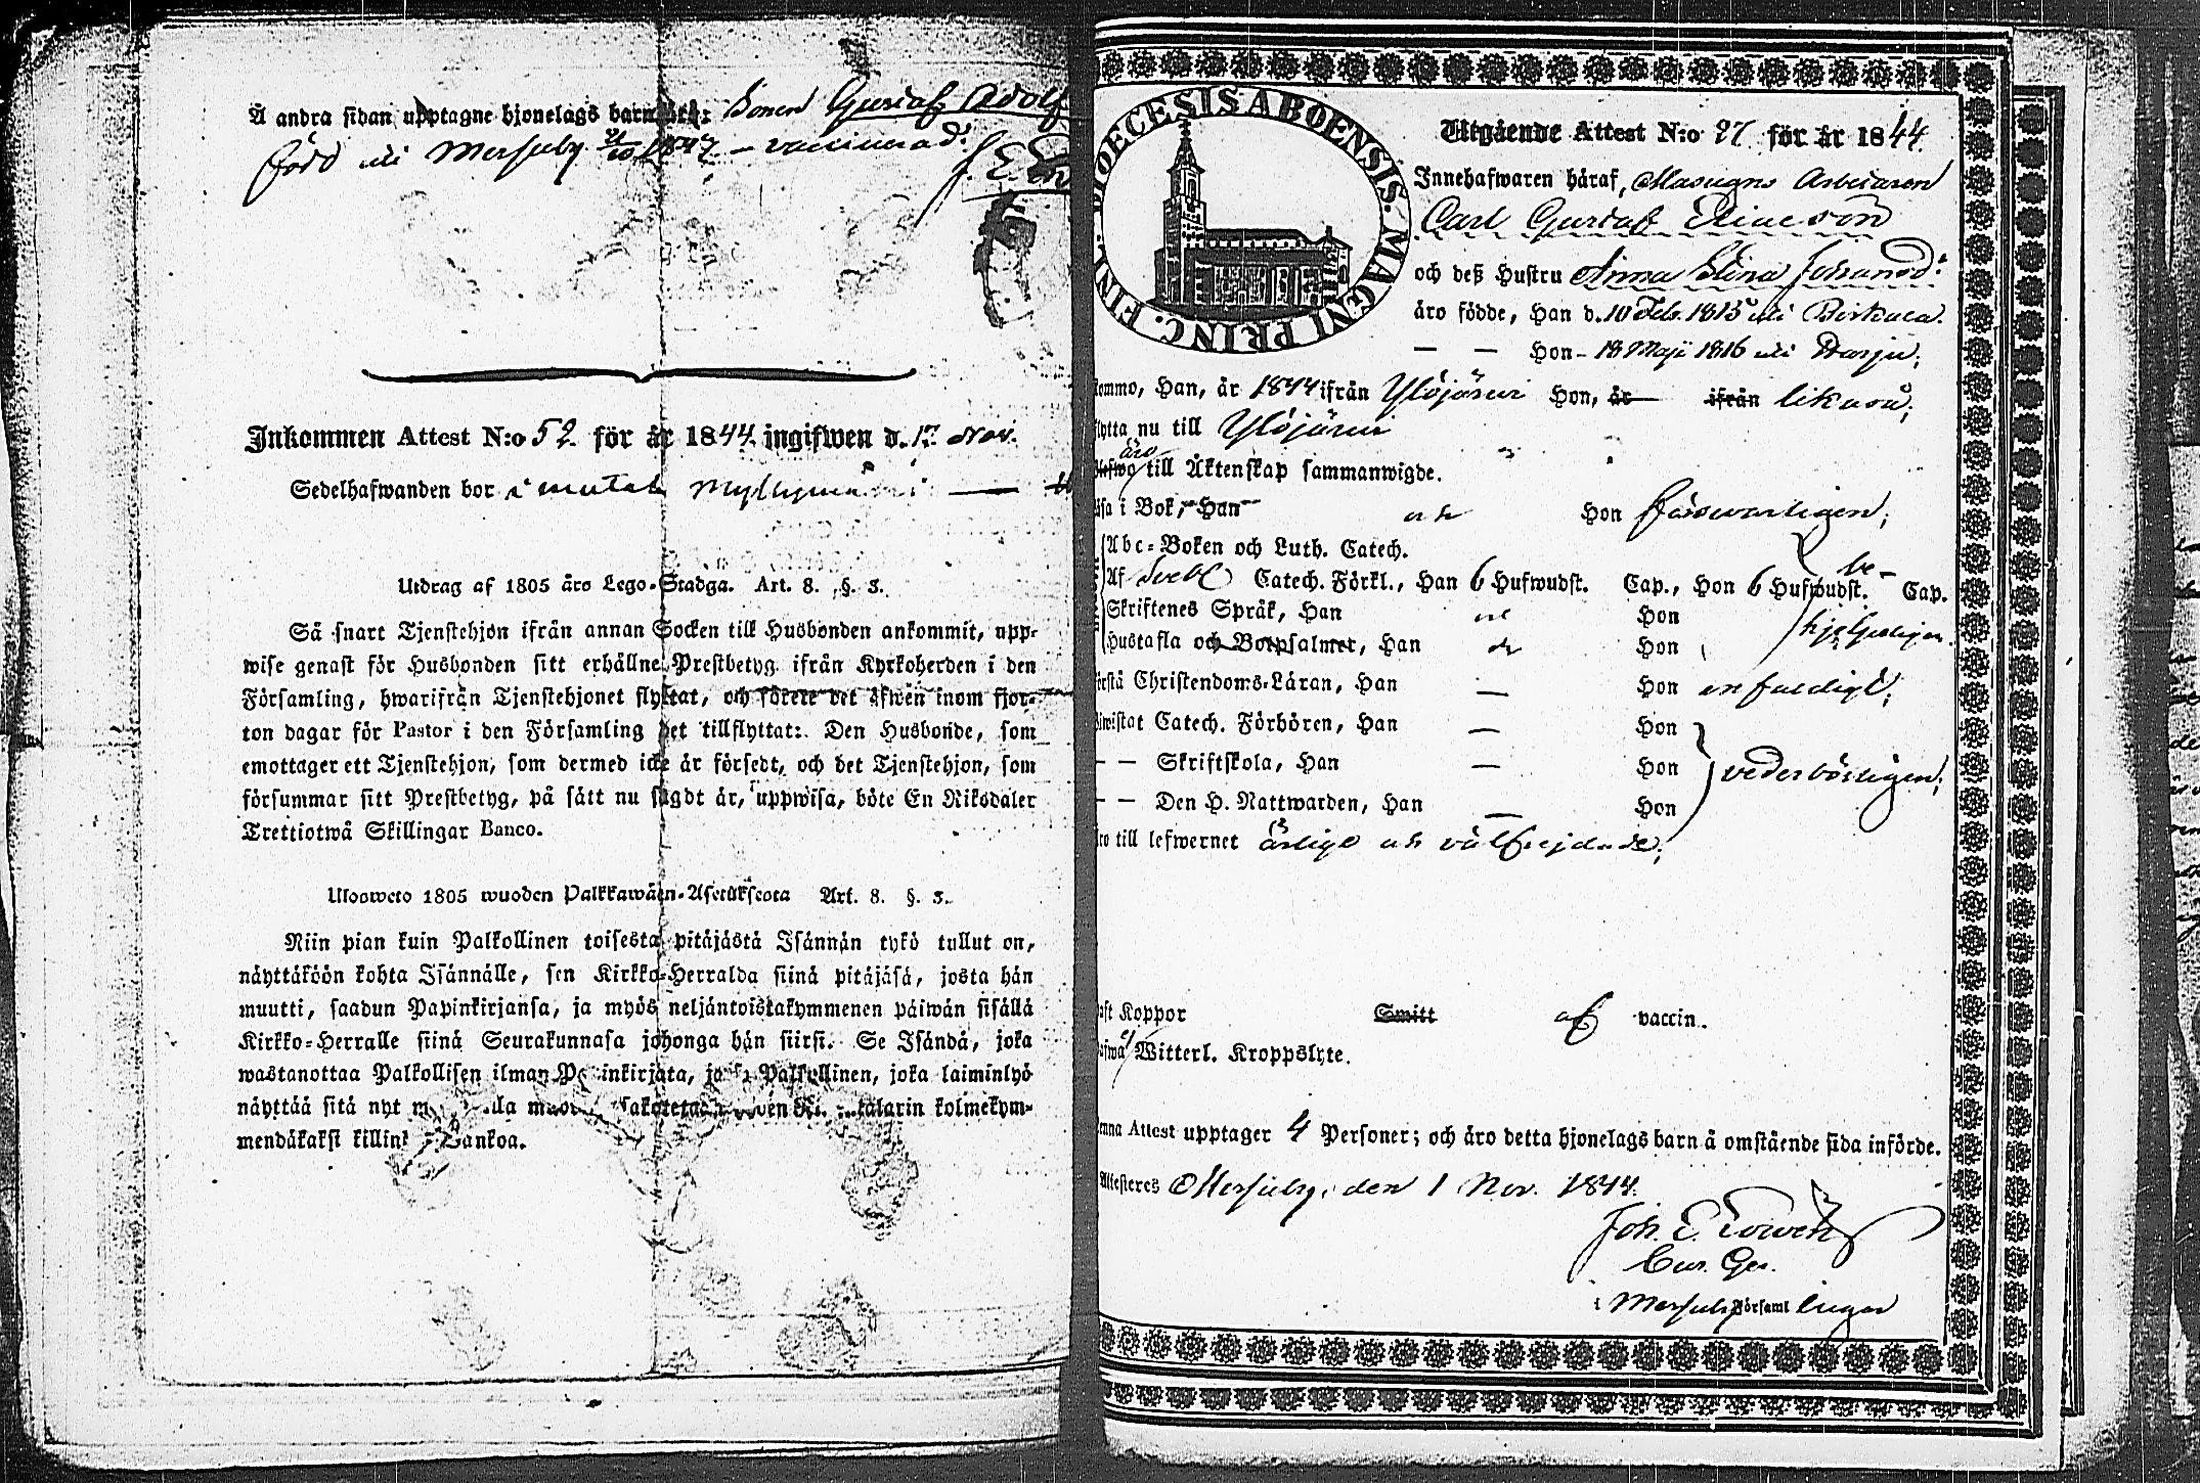 Å andra sidan upptagne hjonelags barn äro: Sonen Gustaf Adolf
född uti Mersuby 1842 – vaccinerad.
J. E.
Inkommen Attest N:o 52 för år 1844 ingifwen d. 17 Nov.
Sedelhafwanden bor i
Utdrag af 1805 års Lego-Stadga. Art. 8. §. 3.
Så snart Tjenstehjon ifrån annan Socken till Husbonden ankommit, upp-
wise genast för Husbonden sitt erhållne Prestbetyg ifrån Kyrkoherden i den
Församling, hwarifrån Tjenstehjonet flyttat, och förete det äfwen inom fjor-
ton dagar för Pastor i den Församling det tillflyttat. Den Husbonde, som
emottager ett Tjenstehjon, som dermed icke är försedt, och det Tjenstehjon, som
försummar sitt Prestbetyg, på sätt nu sagdt är, uppwisa, böte En Riksdaler
Trettiotwå Skillingar Banco.
Ulosweto 1805 wuoden Palkkawäen-Asetuksesta Art. 8. §. 3.
Niin pian kuin Palkollinen toisesta pitäjästä Isännän tykö tullut on,
näyttäköön kohta Isännälle, sen Kirkko-Herralda siinä pitäjäsä, josta hän
muutti, saadun Papinkirjansa, ja myös neljäntoistakymmenen päiwän sisällä
Kirkko-Herralle siinä Seurakunnasa johonga hän siirsi. Se Isändä, joka
wastanottaa Palkollisen ilman Papinkirjata, ja se Palkollinen, joka laiminlyö
näyttää sitä nyt talarin kolmekym-
mendäkaksi killingiä Bankoa.
DIOECESIS ABOENSIS. MAGNI PRINC. FINL.
Utgående Attest N:o 27 för år 1844
Innehafwaren häraf, Masugns Arbetaren
Carl Gustaf Eliasson
och deß Hustru Anna Stina Johansd:
äro födde, Han d. 10 Feb. 1815 uti Birkala.
— — Hon – 18 Maji 1816 uti
kommo, Han, år 1844 ifrån Ylöjärvi Hon, år ifrån likaså;
flytta nu till Ylöjärvi
äro till Äktenskap sammanwigde.
läsa i Bok, Han och Hon försvarligen;
Abc-Boken och Luth. Catech.
Af Sveb. Catech. Förkl., Han 6 Hufwudst. Cap., Hon 6 Hufwudst. Cap. be-
Skriftenes Språk, Han och Hon
Hustafla och Botpsalmer, Han och Hon hjelpeligen.
förstå Christendoms-Läran, Han — Hon enfaldigt;
biwistat Catech. Förhören, Han — Hon
— — Skriftskola, Han — Hon vederbörligen;
— — Den H. Nattwarden, Han — Hon
äro till lefwernet ärlige och välfrejdade;
haft Koppor Smitt af vaccin.
hafwa ej Witterl. Kroppslyte.
Denna Attest upptager 4 Personer; och äro detta hjonelags barn å omstående sida införde.
Attesteres Mersuby, den 1 Nov. 1844.
Joh. E.
Cur. Ger.
i Församlingar